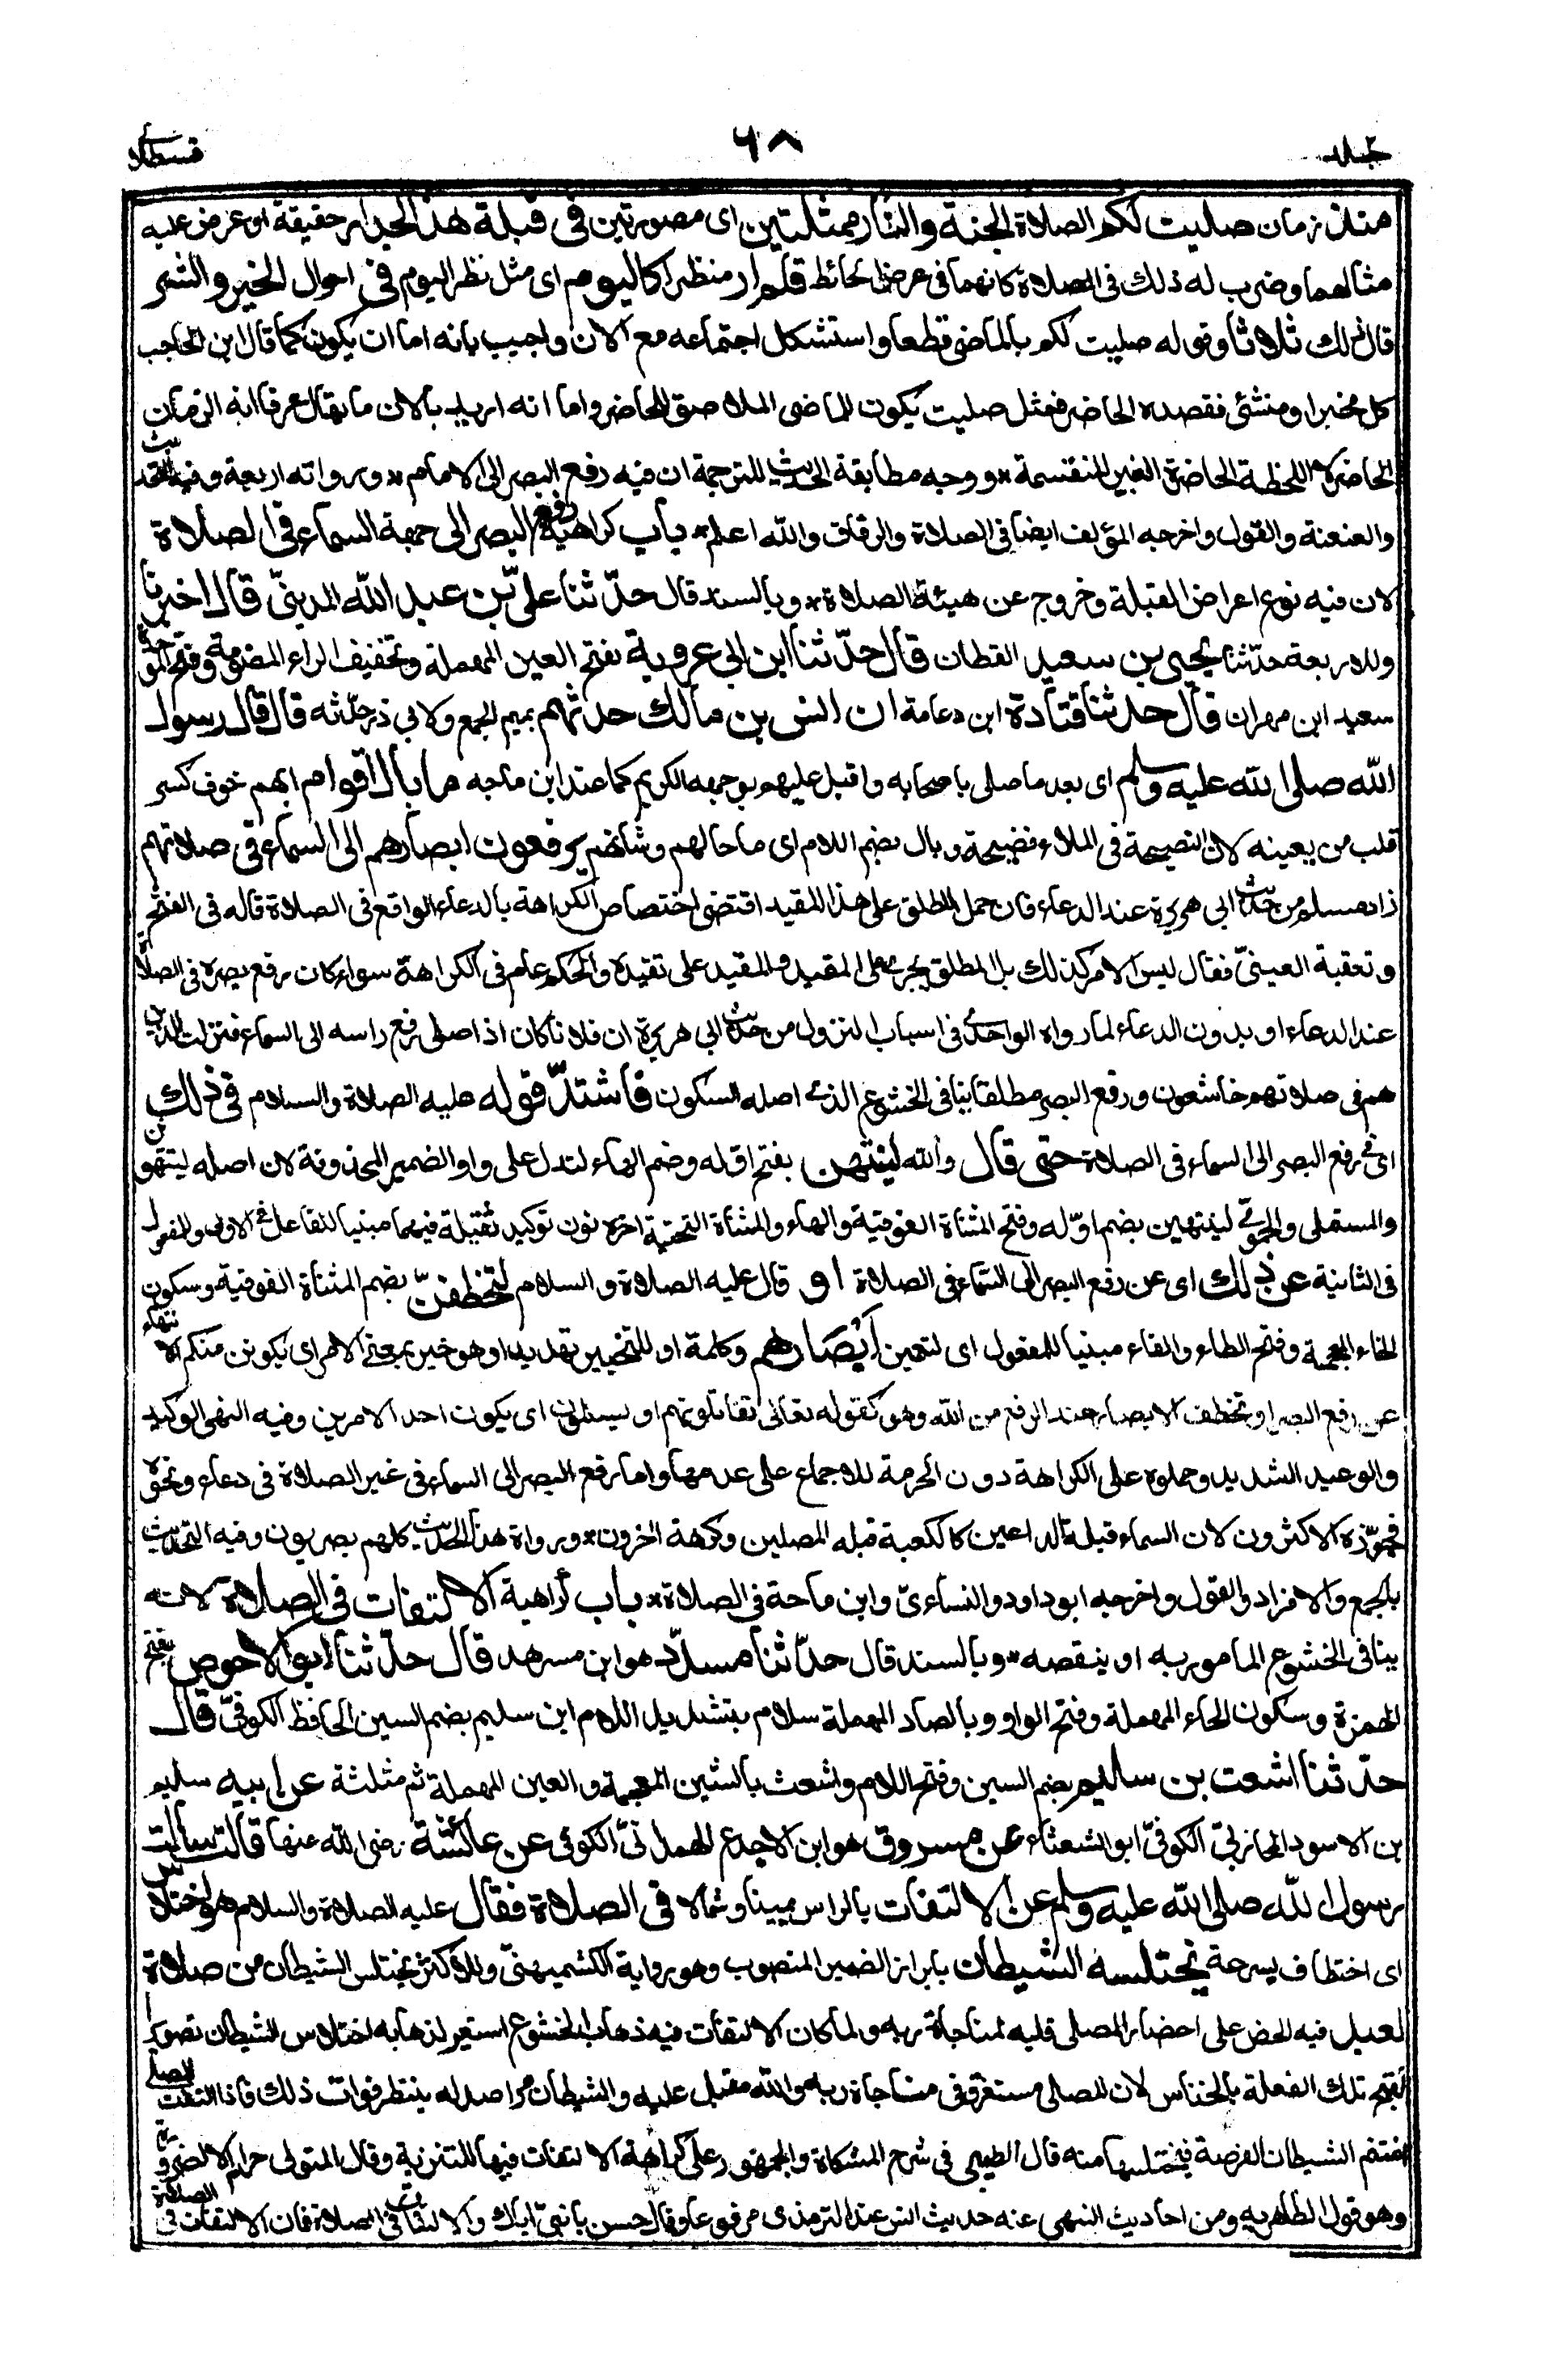 جلد ٢ ٦٨ قسطلاني
منذ زمان صليت لكم الصلاة الجنة والنار ممثلتين اى مصورتين فى قبلة هذا الجدار حقيقة او عرض عليه
مثالهما وضرب له ذلك فى الصلاة كانهما فى عرض الحائط فلم ار منظرا كاليوم اى مثل نظر اليوم فى احوال الخير والشر
قال ذلك ثلاثا وقوله صليت لكم بالماضى قطعا واستشكل اجتماعه مع الان واجيب بانه اما ان يكون كما قال ابن الحاجب
كل مخبر او منشئ فقصده الحاضر فمثل صليت يكون للماضى الملاصق للحاضر واما انه اريد بالان ما يقال عرفا انه الزمان
الحاضر لا اللحظة الحاضرة الغير المنقسمة * ووجه مطابقة الحديث للترجمة ان فيه رفع البصر الى الامام * ورواته اربعة وفيه التحديث
والعنعنة والقول واخرجه المؤلف ايضا فى الصلاة والرقاق والله اعلم * باب كراهية رفع البصر الى جهة السماء فى الصلاة
لان فيه نوع اعراض القبلة وخروج عن هيئة الصلاة * وبالسند قال حدّثنا علىّ بن عبد الله المدينىّ قال اخبرنا
وللاربعة حدّثنا يحيى بن سعيد القطان قال حدّثنا ابن ابى عروبة بفتح العين المهملة وتخفيف الراء المضمومة وفتح الموحدة
سعيد ابن مهران قال حدثنا قتادة ابن دعامة ان انس بن مالك حدثهم بميم الجمع ولابى ذر حدّثه قال قال رسول
الله صلى الله عليه وسلم اى بعد ما صلى باصحابه واقبل عليهم بوجهه الكريم كما عند ابن ماجه ما بال اقوام ابهم خوف كسر
قلب من يعينه لان النصيحة فى الملاء فضيحة وبال بضم اللام اى ما حالهم وشانهم يرفعون ابصارهم الى السماء فى صلاتهم
زاد مسلم من حديث ابى هريرة عند الدعاء فان حمل المطلق على هذا المقيد اقتضى اختصاص الكراهة بالدعاء الواقع فى الصلاة قاله فى الفتح
وتعقبة العينىّ فقال ليس الامر كذلك بل المطلق يجرى على المقيد والمقيد على تقيده والحكم عام فى الكراهة سواء كان رفع بصره فى الصلاة
عند الدعاء او بدون الدعاء لما رواه الواحدى فى اسباب النزول من حديث ابى هريرة ان فلانا كان اذا صلى رفع راسه الى السماء فنزلت الذين
هم فى صلاتهم خاشعون ورفع البصر مطلقا ينافى الخشوع الذى اصله السكون فاشتدّ قوله عليه الصلاة والسلام فى ذلك
اى فى رفع البصر الى السماء فى الصلاة حتى قال والله لينتهن بفتح اوّله وضم الهاء لتدل على واو الضمير المحذوفة لان اصله لينتهونن
والمستملى والحموى لينتهين بضم اوّله وفتح المثناة الفوقية والهاء والمثناة التحتية اخره نون توكيد ثقيلة فيهما مبنيا للفاعل فى الاولى وللمفعول
فى الثانية عن ذلك اى عن رفع البصر الى السماء فى الصلاة او قال عليه الصلاة والسلام لتخطفنّ بضم المثناة الفوقية وسكون
الخاء المعجمة وفتح الطاء والفاء مبنيا للمفعول اى لتعمين ابصارهم وكلمة او للتخيير تهديدا وهو خبر بمعنى الامر اى ليكونن منكم الانتهاء
عن رفع البصر او تخطف الابصار عند الرفع من الله وهو كقوله تعالى تقاتلونهم او يسلمون اى يكون احد الامرين وفيه النهى الوكيد
والوعيد الشديد وحملوه على الكراهة دون الحرمة للاجماع على عدمها واما رفع البصر الى السماء فى غير الصلاة فى دعاء ونحوه
فجوّزه الاكثرون لان السماء قبلة الداعين كالكعبة قبله المصلين وكرهة اخرون * ورواة هذا الحديث كلهم بصريون وفيه التحديث
بالجمع والافراد والقول واخرجه ابو داود والنساءىّ وابن ماجة فى الصلاة * باب كراهية الالتفات فى الصلاة لانه
ينافى الخشوع المامور به او ينقصه * وبالسند قال حدّثنا مسدّد هو ابن مسرهد قال حدّثنا ابو الاحوص بفتح
الهمزة وسكون الحاء المهملة وفتح الواو وبالصاد المهملة سلام بتشديد اللام ابن سليم بضم السين الحافظ الكوفىّ قال
حدّثنا اشعث بن سليم بضم السين وفتح اللام واشعث بالشين المعجمة والعين المهملة ثم مثلثة عن ابيه سليم
بن الاسود المحاربىّ الكوفىّ ابو الشعثاء عن مسروق هو ابن الاجدع الهمدانىّ الكوفى عن عائشة رضى الله عنها قالت سالت
رسول الله صلى الله عليه وسلم عن الالتفات بالراس يمينا وشمالا فى الصلاة فقال عليه الصلاة والسلام هو اختلاس
اى اختطاف بسرعة يختلسه الشيطان بابراز الضمير المنصوب وهو رواية الكشميهنىّ وللاكثر يختلس الشيطان من صلاة
العبد فيه الحض على احضار المصلى قلبه لمناجاة ربه ولما كان الالتفات فيه ذهاب الخشوع استعير لذهابه اختلاس الشيطان تصويرا
لقبح تلك الفعلة بالخناس لان المصلى مستغرق فى مناجاة ربه والله مقبل عليه والشيطان مراصد له ينتظر فوات ذلك فاذا التفت المصلى
اغتنم الشيطان الفرصة فيختلسها منه قال الطيبى فى شرح المشكاة والجمهور على كراهة الالتفات فيها للتنزية وقال المتولى حرام الا لضرورة
وهو قول الظاهرية ومن احاديث النهى عنه حديث انس عند الترمذى مرفوعا وقال حسن يا بنىّ اياك والالتفات فى الصلاة فان الالتفات فى الصلاة